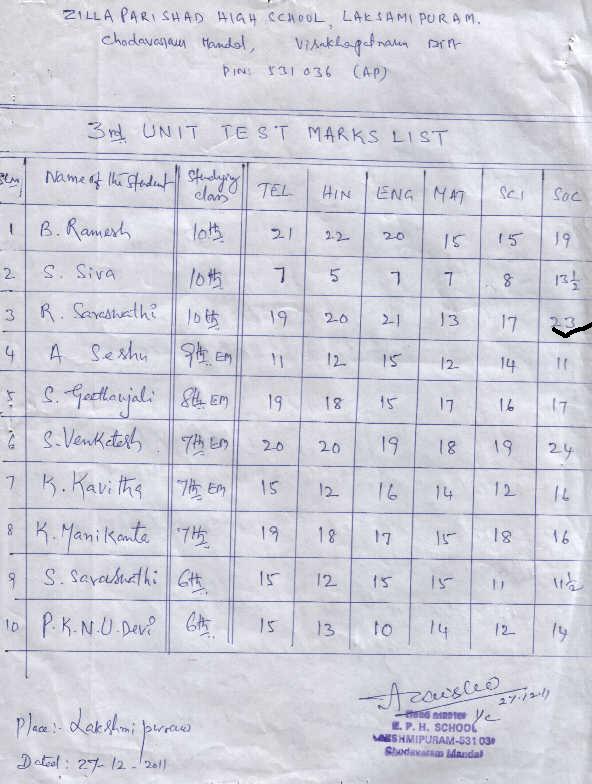 ZILLA PARISHAD HIGH SCHOOL, LAKSAMIPURAM.
Chodavaram Mandal, Visakhapatnam Dist
PIN: 531036 (AP)
3rd UNIT TEST MARKS LIST
Name of the Student Studying class TEL HIN ENG MAT SCI SOC
1 B. Ramesh 10th 21 22 20 15 15 19
2 S. Siva 10th 7 5 7 7 8 13½
3 R. Saraswathi 10th 19 20 21 13 17 23
4 A Seshu 9th EM 11 12 15 12 14 11
5 S. Geethanjali 8th EM 19 18 15 17 16 17
6 S. Venkatesh 7th EM 20 20 19 18 19 24
7 K. Kavitha 7th EM 15 12 16 14 12 16
8 K. Manikanta 7th 19 18 17 15 18 16
9 S. Saraswathi 6th 15 12 15 15 11 11½
10 P.K.N.U. Devi 6th 15 13 10 14 12 14
27-12-11
Head master I/c
Z. P. H. SCHOOL
LAKSHMIPURAM-531 036
Chodavaram Mandal
Place:- Lakshmipuram
Dated: 27-12-2011